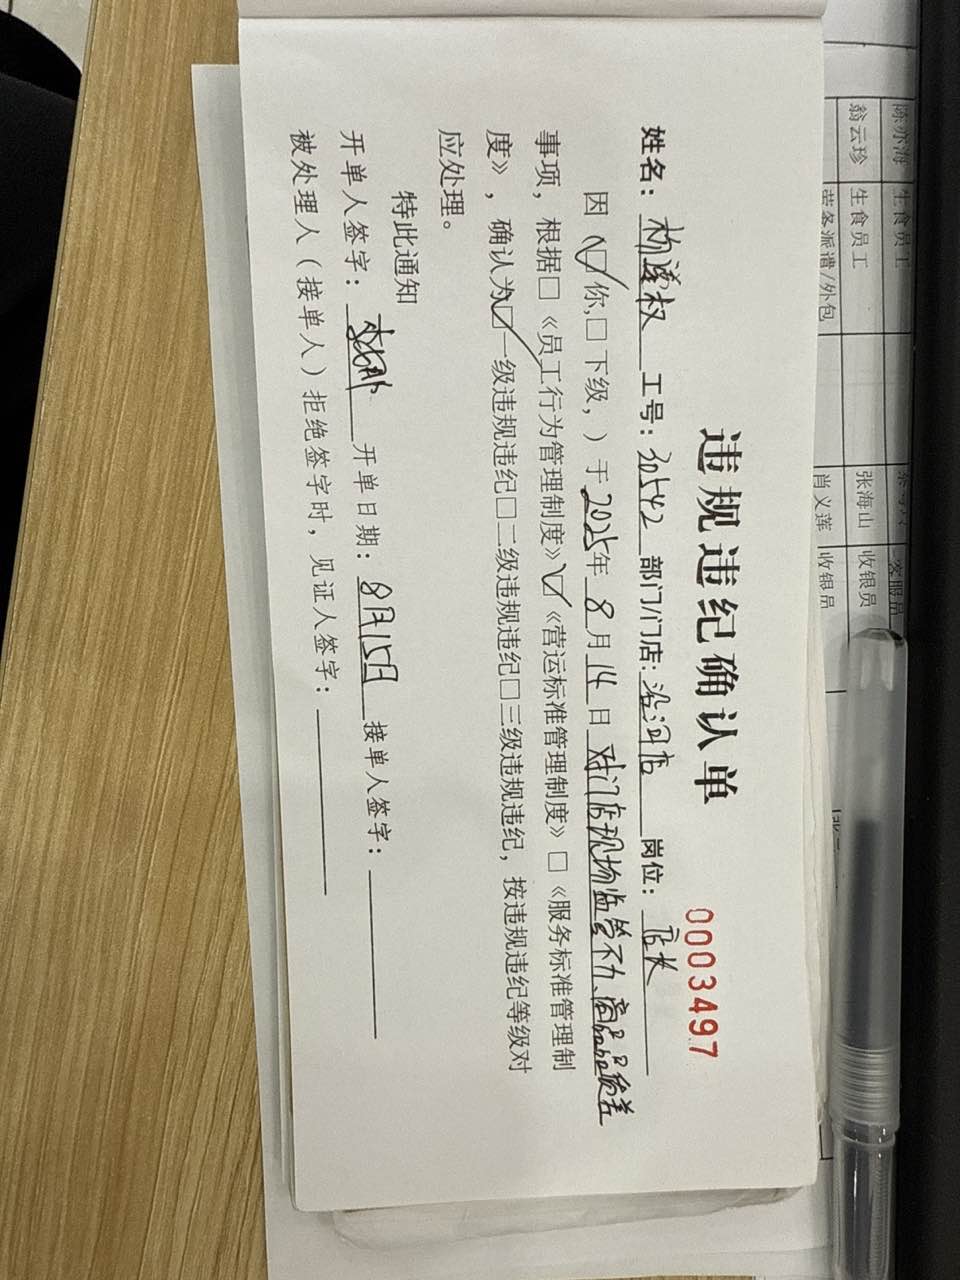 违规违纪确认单
0003497
姓名： 工号： 部门/门店：沿河店 岗位：店长
因（☑你，□下级，）于2025年8月14日对门店现场监管不力、商品品质差
事项，根据□《员工行为管理制度》☑《营运标准管理制度》□《服务标准管理制
度》，确认为☑一级违规违纪□二级违规违纪□三级违规违纪，按违规违纪等级对
应处理。
特此通知
开单人签字： 开单日期：8月15日 接单人签字：
被处理人（接单人）拒绝签字时，见证人签字：
陈亦海 生食员工 客服员
翁云珍 生食员工 张海山 收银员
肖义莲 收银员